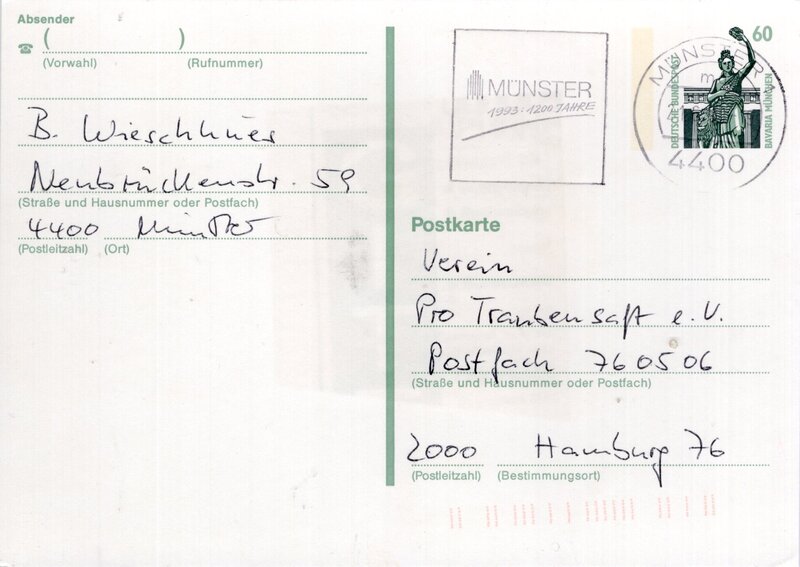 Absender
( )
(Vorwahl) (Rufnummer)
B. Wieschhües
Neubrückenstr. 59
(Straße und Hausnummer oder Postfach)
4400 Münster
(Postleitzahl) (Ort)
MÜNSTER
1993: 1200 JAHRE
60
DEUTSCHE BUNDESPOST
BAVARIA MÜNCHEN
MÜNSTER
m
4400
Postkarte
Verein
Pro Traubensaft e.V.
Postfach 760506
(Straße und Hausnummer oder Postfach)
2000 Hamburg 76
(Postleitzahl) (Bestimmungsort)